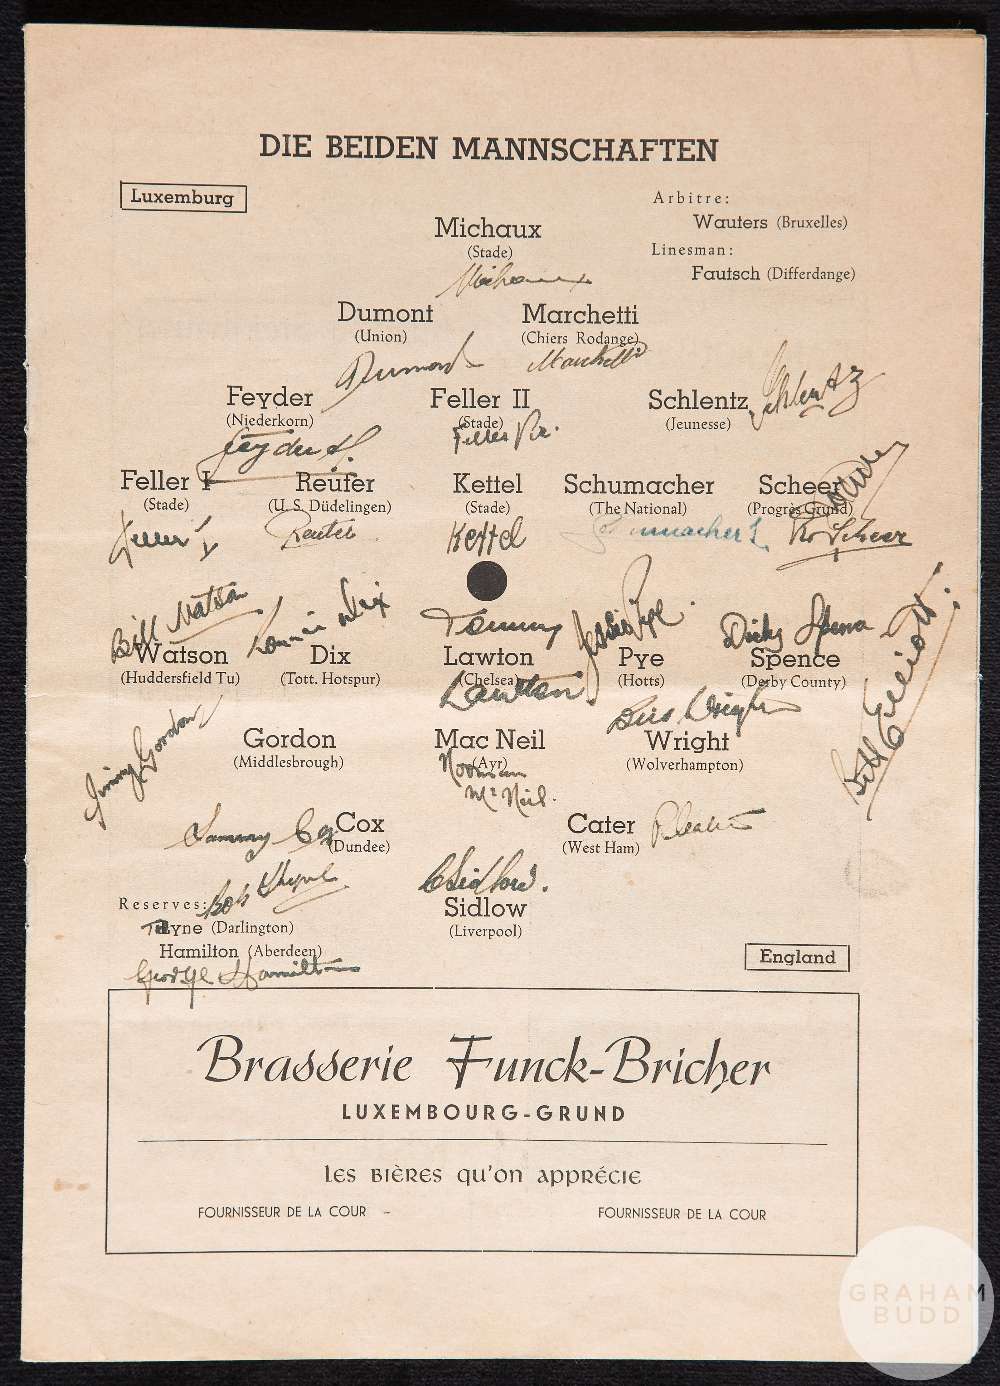 DIE BEIDEN MANNSCHAFTEN
Luxemburg
Arbitre:
Wauters (Bruxelles)
Linesman:
Fautsch (Differdange)
Michaux
(Stade)
Michaux
Dumont Marchetti
(Union) (Chiers Rodange)
Dumont Marchetti
Feyder Feller II Schlentz
(Niederkorn) (Stade) (Jeunesse)
Schlentz
Feyder Feller
Feller I Reuter Kettel Schumacher Scheer
(Stade) (U. S. Düdelingen) (Stade) (The National) (Progrès Grund)
Feller Reuter Kettel Schumacher Scheer
Bill Watson Dix Tommy Jessie Pye Dicky Spence
Watson Dix Lawton Pye Spence
(Huddersfield Tu) (Tott. Hotspur) (Chelsea) (Hotts) (Derby County)
Lawton
Billy Elliott
Jimmy Gordon
Bill Wright
Gordon Mac Neil Wright
(Middlesbrough) (Ayr) (Wolverhampton)
Norman
McNeil
Sammy Cox
Cox Cater
(Dundee) (West Ham)
R Cater
C Sidlow.
Bob Thyne
Reserves:
Thyne (Darlington)
Hamilton (Aberdeen)
George Hamilton
Sidlow
(Liverpool)
England
Brasserie Funck-Bricher
LUXEMBOURG-GRUND
Les bières qu'on apprécie
FOURNISSEUR DE LA COUR - FOURNISSEUR DE LA COUR
GRAHAM
BUDD